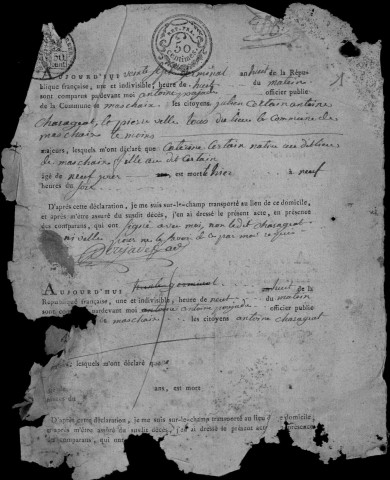 50 Centimes
AUJOURD'HUI vingt sept germinal an huit de la Répu-
blique française, une et indivisible, heure de huit du matin
sont comparus pardevant moi antoine officier public
de la Commune de maschaix les citoyens julien Certain antoine
Charagrat et pierre velle tous du lieu et Commune de
maschaix temoins
majeurs, lesquels m'ont déclaré que Caterine Certain native du dit lieu
de maschaix fille au dit Certain
âgé de neuf jours est mort hier à neuf
heures du soir
D'après cette déclaration, je me suis sur-le-champ transporté au lieu de ce domicile,
et après m'être assuré du susdit décès, j'en ai dressé le présent acte, en présence
des comparants, qui ont signé avec moi, non ledit charagrat
ni velle pour ne le savoir de ce par moi requis
AUJOURD'HUI trente germinal an huit de la
République française, une et indivisible, heure de neuf du matin
sont comparus pardevant moi antoine officier
maschaix les citoyens antoine charagrat
lesquels m'ont déclaré que
ans, est mort
du
D'après cette déclaration, je me suis sur-le-champ transporté au lieu de ce domicile,
et après m'être assuré du susdit décès, j'en ai dressé le présent acte en présence
des comparants, qui ont